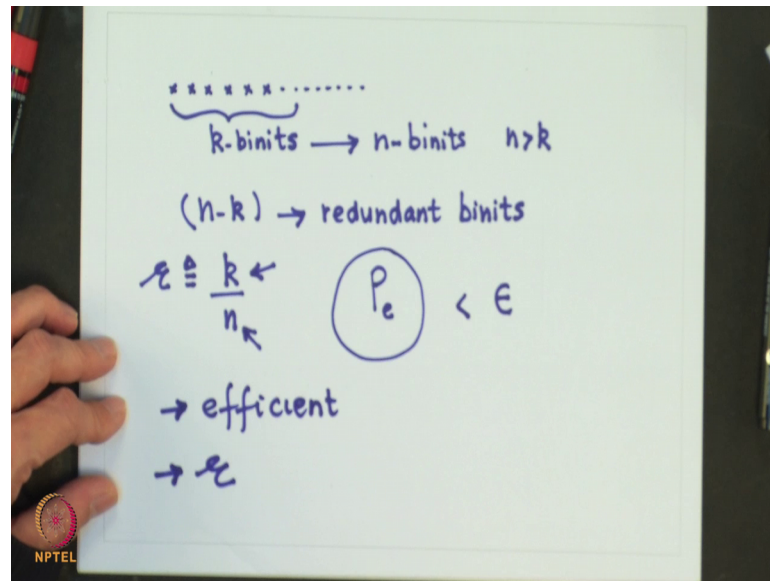 x x x x x x . . . . . . . .
k-binits → n-binits n>k
(n-k) → redundant binits
r ≜ k/n P_e < ϵ
→ efficient
→ r
NPTEL